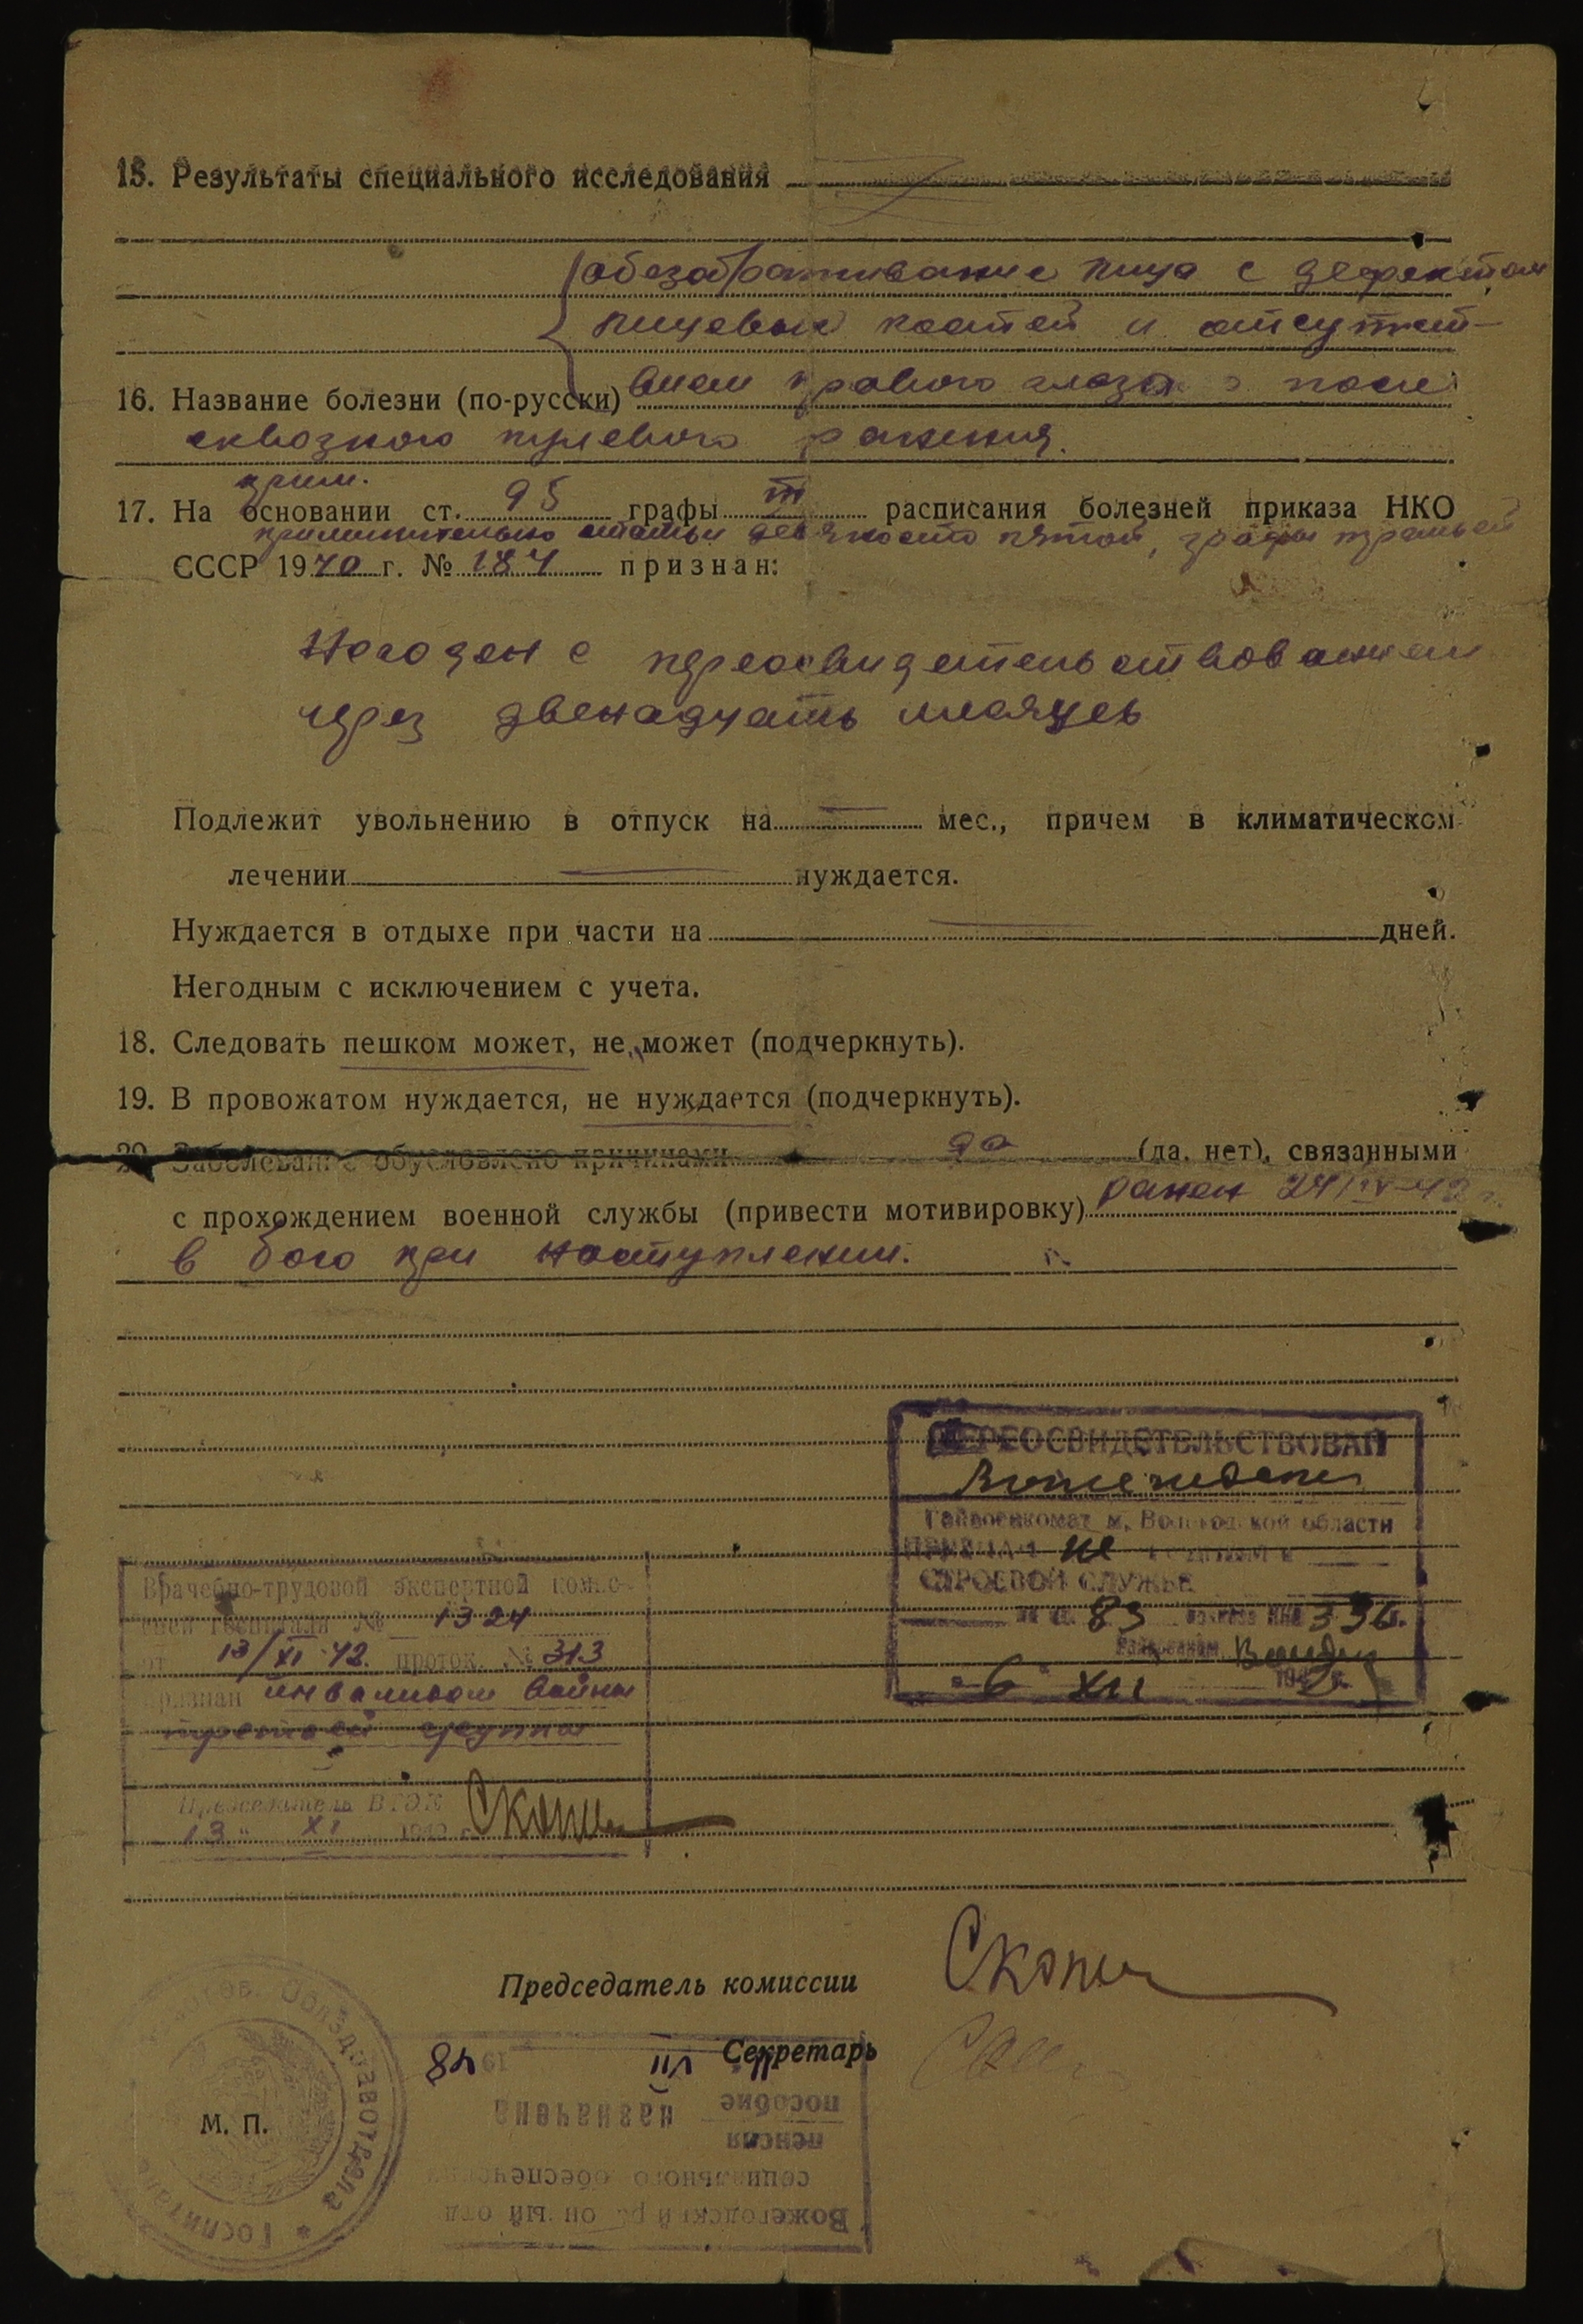 15. Результаты специального исследования
обезображивание лица с дефектом
лицевых костей и отсутст-
16. Название болезни (по-русски) вием правого глаза после
сквозного пулевого ранения.
прим.
17. На основании ст. 95 графы III расписания болезней приказа НКО
применительно статьи девяносто пятой, графы третьей
СССР 1940 г. № 184 признан:
Негоден с переосвидетельствованием
через двенадцать месяцев
Подлежит увольнению в отпуск на — мес., причем в климатическом
лечении — нуждается.
Нуждается в отдыхе при части на — дней.
Негодным с исключением с учета.
18. Следовать пешком может, не может (подчеркнуть).
19. В провожатом нуждается, не нуждается (подчеркнуть).
20. Заболевание обусловлено причинами да (да, нет), связанными
с прохождением военной службы (привести мотивировку) ранен 24/IV-42 г.
в бою при наступлении.
ПЕРЕОСВИДЕТЕЛЬСТВОВАН
Райвоенкомат м, Вологодской области
ПРИЗНАН не годным к
СТРОЕВОЙ СЛУЖБЕ
по ст. 83 приказа НКО 336.
Райвоенком
"6" XII 194
Врачебно-трудовой экспертной комис-
сией госпиталя № 1324
от 13/XI-42. проток. № 313
признан инвалидом войны
третьей группы
Председатель ВТЭК
13 " XI 1942 г.
Председатель комиссии
Секретарь
М. П.
Вожегодский районный отд
социального обеспечения
пенсия
пособие назначена
Госпиталь
Облздравотдела